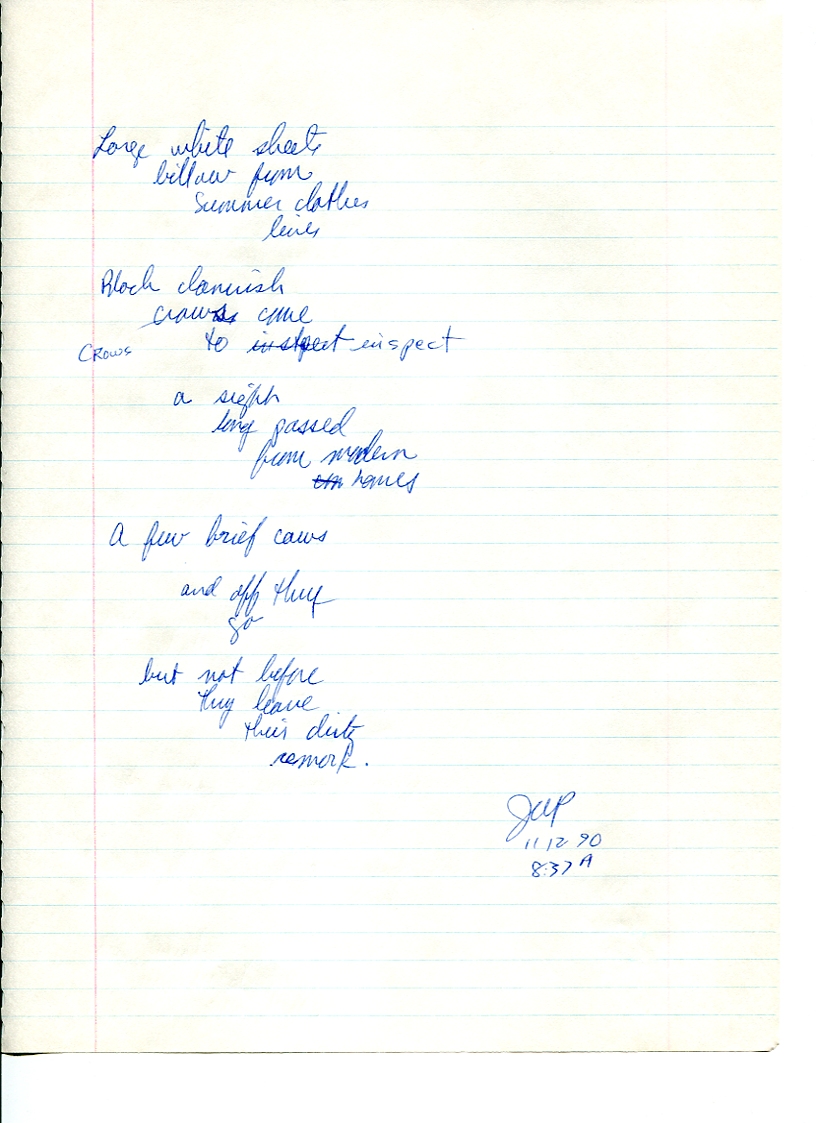 Large white sheets
billow from
Summer clothes
lines
Black clannish
crows come
Crows
to inspect inspect
a sight
long passed
from modern
homes
A few brief caws
and off they
go
but not before
they leave
their dirty
remark.
JWP
11 12 90
8:37 A